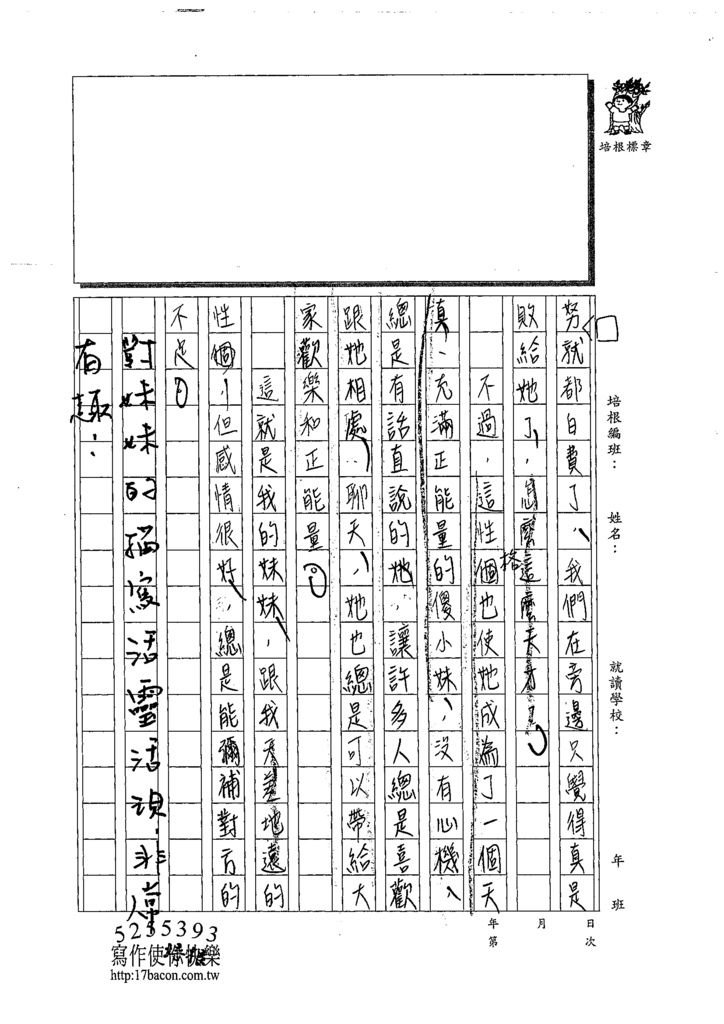 培根標章
培根編班：
姓名：
就讀學校：
年 班
日 月 年
次 第
努就都白費了，我們在旁邊只覺得真是
敗給她了，怎麼這麼天才了
不過，這性個也使她成為了一個天
格
真、充滿正能量的傻小妹，沒有心機、
總是有話直說的她，讓許多人總是喜歡
跟她相處、聊天，她也總是可以帶給大
家歡樂和正能量。
這就是我的妹妹，跟我天差地遠的
性個，但感情很好，總是能彌補對方的
不足。
對妹妹的描寫活靈活現，非常
有趣！
5235393
寫作使你快樂
http:17bacon.com.tw